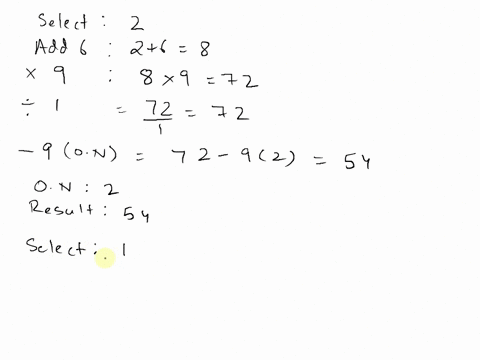 Select : 2
Add 6 : 2+6 = 8
× 9 : 8 × 9 = 72
÷ 1 = 72/1 = 72
- 9 (O.N) = 72 - 9(2) = 54
O.N : 2
Result : 54
Select : 1